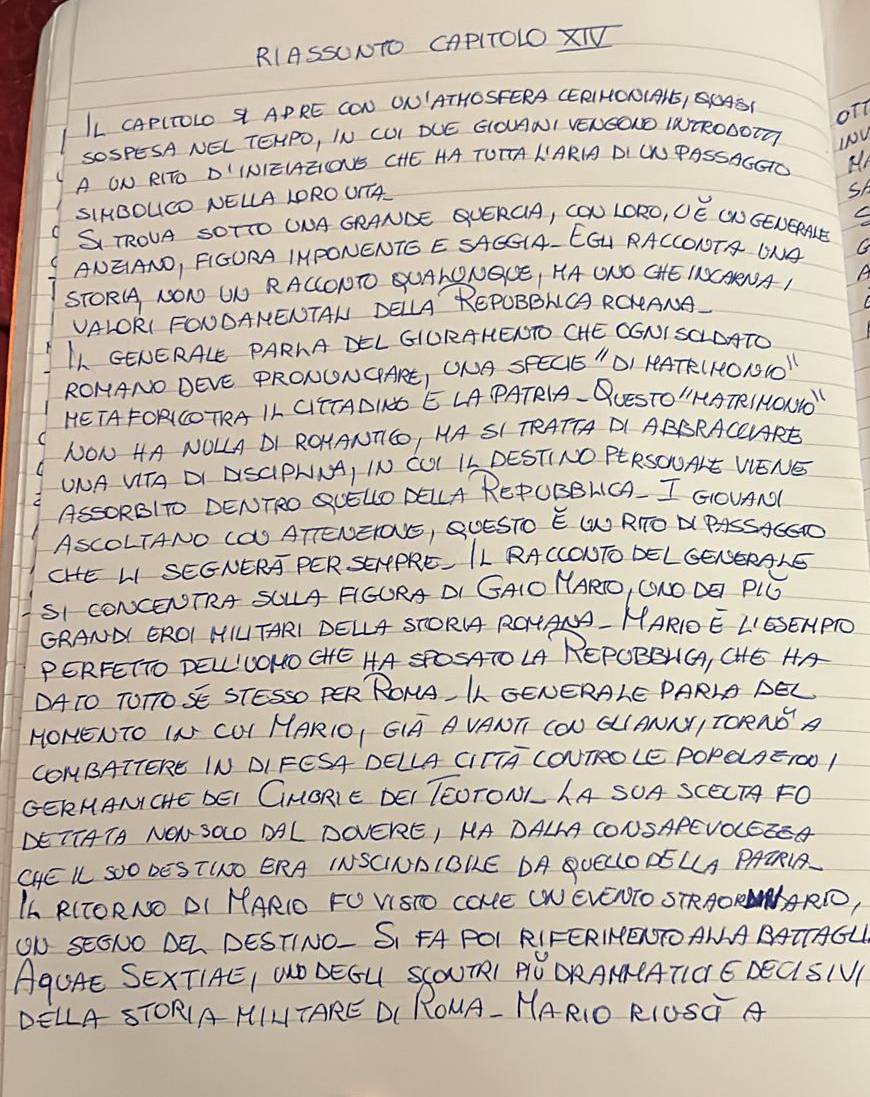 RIASSUNTO CAPITOLO XIV
IL CAPITOLO SI APRE CON UN'ATMOSFERA CERIMONIALE, QUASI
SOSPESA NEL TEMPO, IN CUI DUE GIOVANI VENGONO INTRODOTTI
A UN RITO D'INIZIAZIONE CHE HA TUTTA L'ARIA DI UN PASSAGGIO
SIMBOLICO NELLA LORO VITA_
SI TROVA SOTTO UNA GRANDE QUERCIA, CON LORO, C'È UN GENERALE
ANZIANO, FIGURA IMPONENTE E SAGGIA_ EGLI RACCONTA UNA
STORIA, NON UN RACCONTO QUALUNQUE, MA UNO CHE INCARNA I
VALORI FONDAMENTALI DELLA REPUBBLICA ROMANA_
IL GENERALE PARLA DEL GIURAMENTO CHE OGNI SOLDATO
ROMANO DEVE PRONUNCIARE, UNA SPECIE "DI MATRIMONIO"
METAFORICO TRA IL CITTADINO E LA PATRIA_ QUESTO "MATRIMONIO"
NON HA NULLA DI ROMANTICO, MA SI TRATTA DI ABBRACCIARE
UNA VITA DI DISCIPLINA, IN CUI IL DESTINO PERSONALE VIENE
ASSORBITO DENTRO QUELLO DELLA REPUBBLICA_ I GIOVANI
ASCOLTANO CON ATTENZIONE, QUESTO È UN RITO DI PASSAGGIO
CHE LI SEGNERÀ PER SEMPRE_ IL RACCONTO DEL GENERALE
SI CONCENTRA SULLA FIGURA DI GAIO MARIO, UNO DEI PIÙ
GRANDI EROI MILITARI DELLA STORIA ROMANA_ MARIO È L'ESEMPIO
PERFETTO DELL'UOMO CHE HA SPOSATO LA REPUBBLICA, CHE HA
DATO TUTTO SÉ STESSO PER ROMA_ IL GENERALE PARLA DEL
MOMENTO IN CUI MARIO, GIÀ AVANTI CON GLI ANNI, TORNÒ A
COMBATTERE IN DIFESA DELLA CITTÀ CONTRO LE POPOLAZIONI
GERMANICHE DEI CIMBRI E DEI TEUTONI_ LA SUA SCELTA FU
DETTATA NON SOLO DAL DOVERE, MA DALLA CONSAPEVOLEZZA
CHE IL SUO DESTINO ERA INSCINDIBILE DA QUELLO DELLA PATRIA_
IL RITORNO DI MARIO FU VISTO COME UN EVENTO STRAORDINARIO,
UN SEGNO DEL DESTINO_ SI FA POI RIFERIMENTO ALLA BATTAGLI
AQUAE SEXTIAE, UNO DEGLI SCONTRI PIÙ DRAMMATICI E DECISIVI
DELLA STORIA MILITARE DI ROMA_ MARIO RIUSCÌ A
OTT
INV